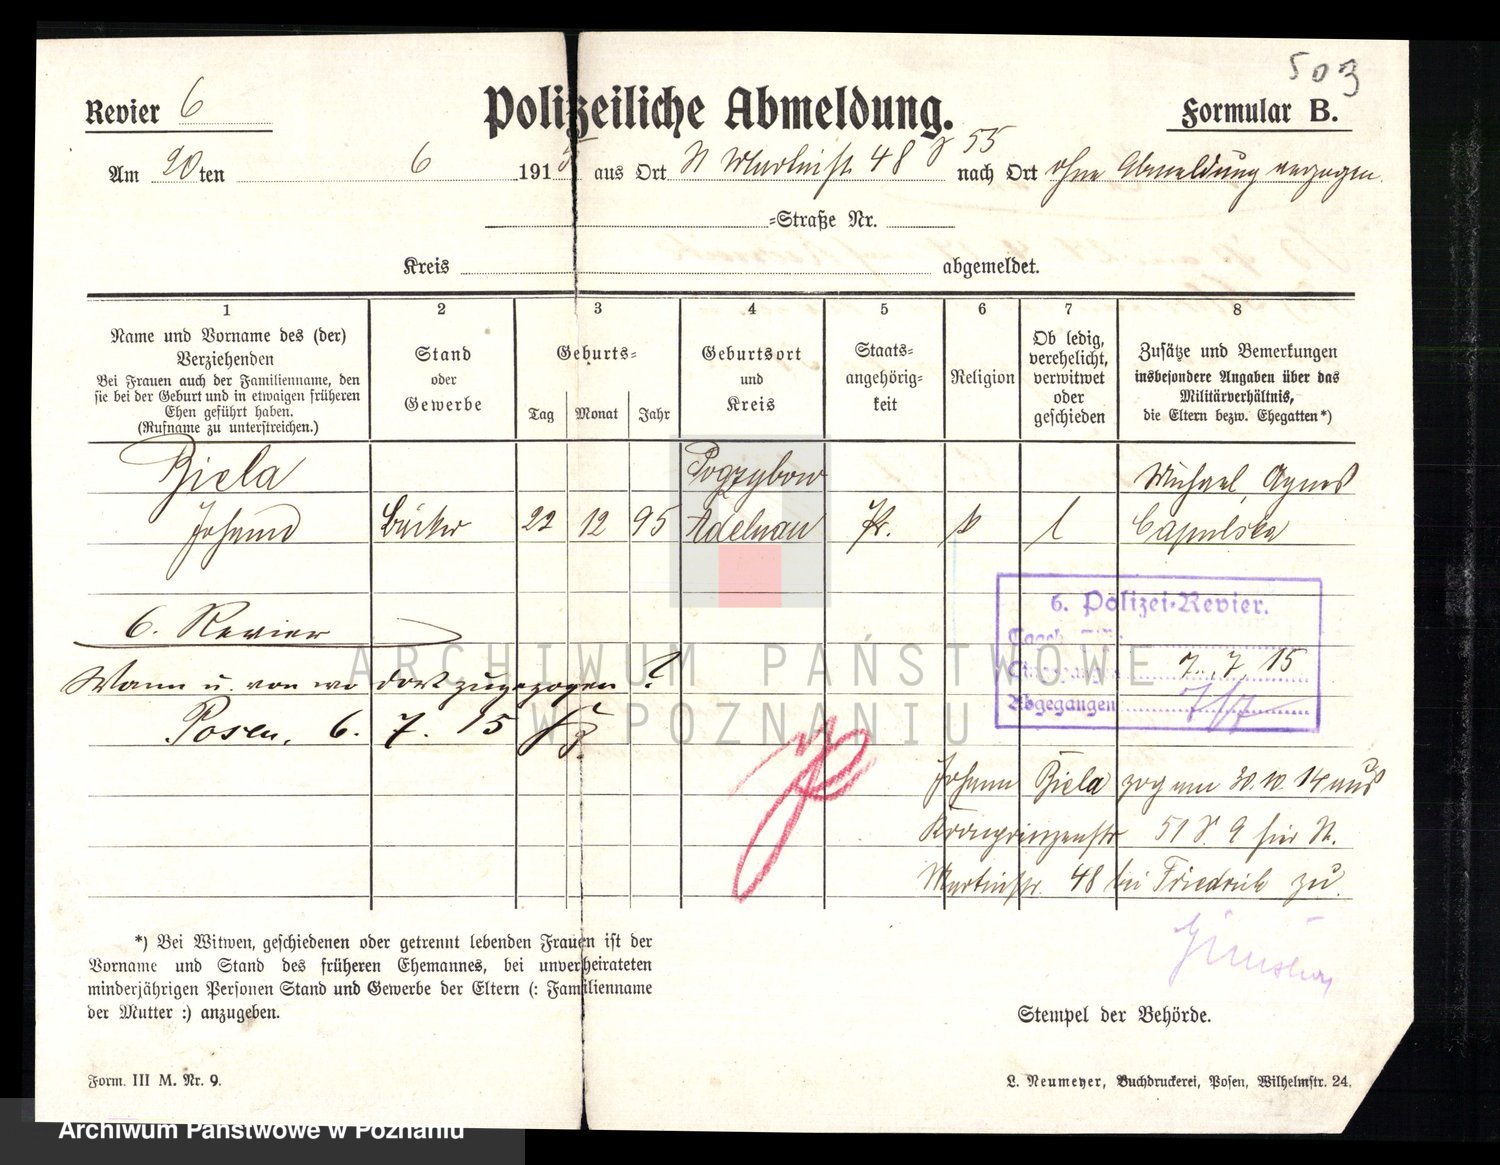 503
Revier 6
Polizeiliche Abmeldung.
Formular B.
Am 20ten 6 1915 aus Ort St Martinstr. 48 S 55 nach Ort ohne Abmeldung verzogen.
-Straße Nr.
Kreis abgemeldet.
1 2 3 4 5 6 7 8
Name und Vorname des (der)
Verziehenden
Bei Frauen auch der Familienname, den
sie bei der Geburt und in etwaigen früheren
Ehen geführt haben.
(Rufname zu unterstreichen.)
Stand
oder
Gewerbe
Geburts-
Tag Monat Jahr
Geburtsort
und
Kreis
Staats-
angehörig-
keit
Religion
Ob ledig,
verehelicht,
verwitwet
oder
geschieden
Zusätze und Bemerkungen
insbesondere Angaben über das
Militärverhältnis,
die Eltern bezw. Ehegatten*)
Biela Pogrzybow Michael, Agnes
Johann Bäcker 22 12 95 Adelnau Pr. k l Capulska
6. Revier
Wann u. von wo dort zugezogen?
Posen, 6. 7. 15
6. Polizei-Revier.
7. 7. 15
Abgegangen 7/7
Johann Biela zog am 30.10.14 aus
Kronprinzenstr 51 S. 9 hier St.
Martinstr. 48 bei Friedrich zu.
*) Bei Witwen, geschiedenen oder getrennt lebenden Frauen ist der
Vorname und Stand des früheren Ehemannes, bei unverheirateten
minderjährigen Personen Stand und Gewerbe der Eltern (: Familienname
der Mutter :) anzugeben.
Stempel der Behörde.
Form. III M. Nr. 9.
L. Neumeyer, Buchdruckerei, Posen, Wilhelmstr. 24.
ARCHIWUM PAŃSTWOWE
W POZNANIU
Archiwum Państwowe w Poznaniu